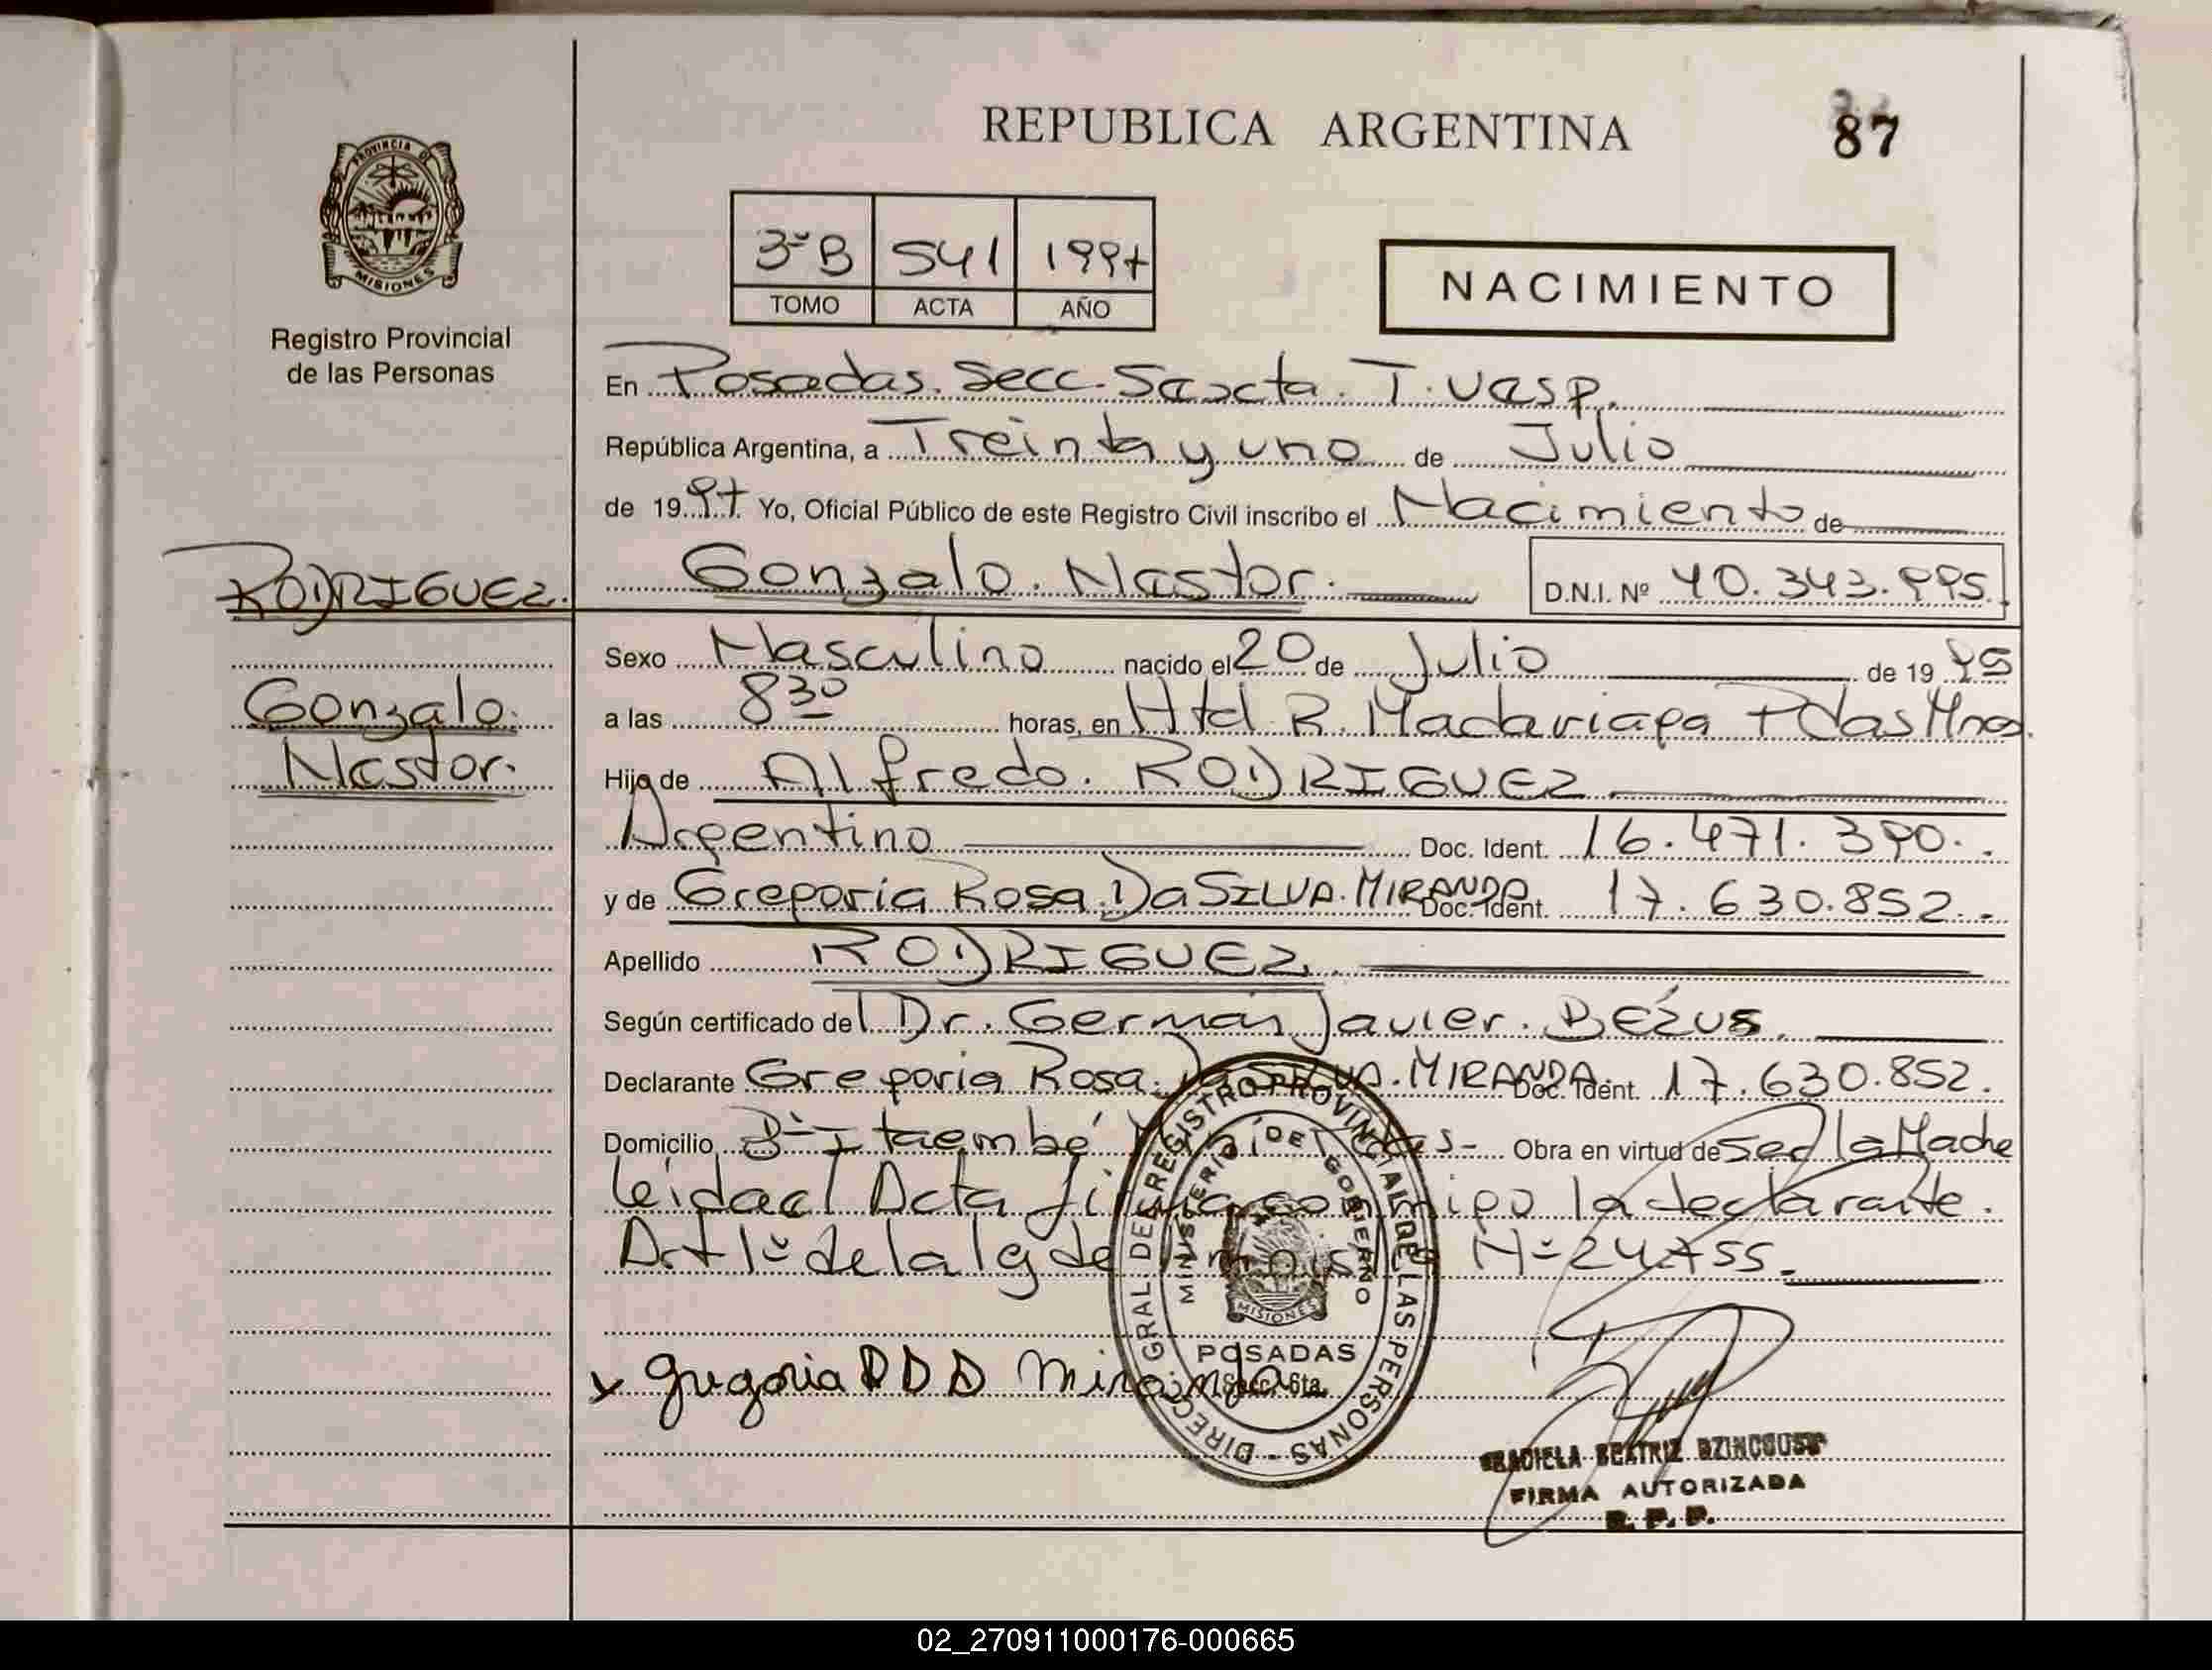 REPUBLICA ARGENTINA
87
PROVINCIA DE
MISIONES
Registro Provincial
de las Personas
3º B 541 1997
TOMO ACTA AÑO
NACIMIENTO
En Posadas. Secc. Sexcta. T. Vesp.
República Argentina, a Treinta y uno de Julio
de 1997 Yo, Oficial Público de este Registro Civil inscribo el Nacimiento de
RODRIGUEZ. Gonzalo. Nestor. D.N.I. Nº 40.343.995.
Sexo Masculino nacido el 20 de Julio de 19 95
Gonzalo. a las 8 30 horas, en Htal R. Madariaga Pdas Mnes.
Nestor. Hijo de Alfredo. RODRIGUEZ
Argentino Doc. Ident. 16.471.390.
y de Gregoria Rosa. Da SILVA. MIRANDA Doc. Ident. 17.630.852.
Apellido RODRIGUEZ.
Según certificado del Dr. Germán Javier. BEZUS.
Declarante Gregoria Rosa. Da SILVA. MIRANDA. Doc. Ident. 17.630.852.
Domicilio Bº Itaembé Miní Pdas- Obra en virtud de Ser la Madre
leida el Acta firma conmigo la declarante.
Art 1º de la ley de Nº 24755.
DIREC. GRAL DE REGISTRO PROVINCIAL DE LAS PERSONAS -
MINISTERIO DE GOBIERNO
MISIONES
POSADAS
Secc. 6ta.
x Gregoria Miranda
GRACIELA BEATRIZ
FIRMA AUTORIZADA
R. P. P.
02_270911000176-000665